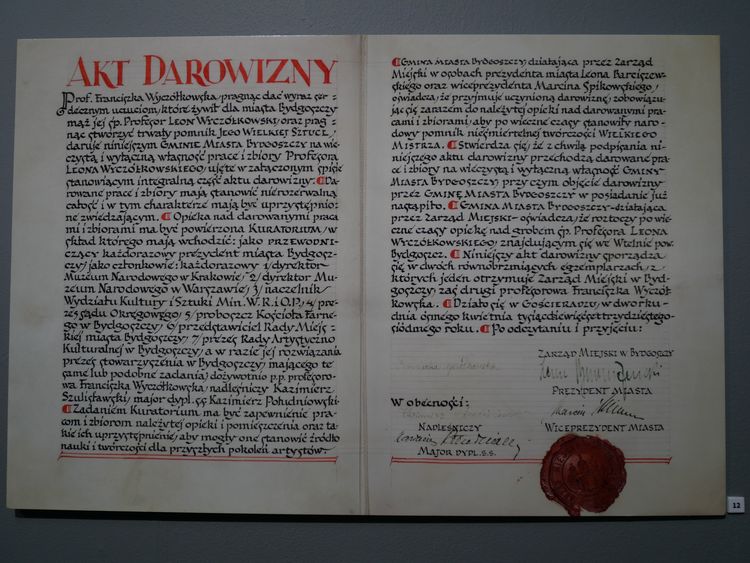 AKT DAROWIZNY
Prof. Franciszka Wyczółkowska, pragnąc dać wyraz ser=
decznym uczuciom, które żywił dla miasta Bydgoszczy
mąż jej śp. Profesor LEON WYCZÓŁKOWSKI, oraz prag=
nąc stworzyć trwały pomnik JEGO WIELKIEJ SZTUCE,
daruje niniejszym GMINIE MIASTA BYDGOSZCZY na wie=
czystą i wyłączną własność prace i zbiory PROFESORA
LEONA WYCZÓŁKOWSKIEGO, ujęte w załączonym spisie
stanowiącym integralną część aktu darowizny. Da=
rowane prace i zbiory mają stanowić nierozerwalną
całość i w tym charakterze mają być uprzystępnio=
ne zwiedzającym. Opieka nad darowanymi praca
mi i zbiorami ma być powierzona KURATORIUM, w
skład którego mają wchodzić: jako PRZEWODNI=
CZĄCY każdorazowy prezydent miasta Bydgosz=
czy, jako członkowie: każdorazowy 1/ dyrektor
Muzeum Narodowego w Krakowie, 2/ dyrektor Mu=
zeum Narodowego w Warszawie, 3/ naczelnik
Wydziału Kultury i Sztuki Min. W. R. i O. P., 4/ pre=
zes Sądu Okręgowego, 5/ proboszcz Kościoła Farne=
go w Bydgoszczy, 6/ przedstawiciel Rady Miejs=
kiej miasta Bydgoszczy, 7/ prezes Rady Artystyczno
Kulturalnej w Bydgoszczy, a w razie jej rozwiązania
prezes stowarzyszenia w Bydgoszczy, mającego te
same lub podobne zadania, dożywotnio p.p. profesoro=
wa Franciszka Wyczółkowska, nadleśniczy Kazimierz
Szulisławski, major dypl. ss Kazimierz Południowski.
Zadaniem Kuratorium ma być zapewnienie pra=
com i zbiorom należytej opieki i pomieszczenia oraz ta=
kie ich uprzystępnienie, aby mogły one stanowić źródło
nauki i twórczości dla przyszłych pokoleń artystów.
GMINA MIASTA BYDGOSZCZY, działająca przez Zarząd
Miejski w osobach prezydenta miasta Leona Barciszew=
skiego oraz wiceprezydenta Marcina Spikowskiego,
oświadcza, że przyjmuje uczynioną darowiznę, zobowiązu=
jąc się zarazem do należytej opieki nad darowanymi pra=
cami i zbiorami, aby po wieczne czasy stanowiły naro=
dowy pomnik nieśmiertelnej twórczości WIELKIEGO
MISTRZA. Stwierdza się, że z chwilą podpisania ni=
niejszego aktu darowizny przechodzą darowane pra=
ce i zbiory na wieczystą i wyłączną własność GMINY
MIASTA BYDGOSZCZY przy czym objęcie darowizny
przez GMINĘ MIASTA BYDGOSZCZY w posiadanie już
nastąpiło. GMINA MIASTA BYDGOSZCZY-działająca
przez ZARZĄD MIEJSKI-oświadcza, że roztoczy po wie=
czne czasy opiekę nad grobem śp. Profesora LEONA
WYCZÓŁKOWSKIEGO, znajdującym się we Wtelnie pow.
Bydgoszcz. Niniejszy akt darowizny sporządza
się w dwóch równobrzmiących egzemplarzach, z
których jeden otrzymuje Zarząd Miejski w Byd=
goszczy, zaś drugi profesorowa Franciszka Wyczół=
kowska. Działo się w GOŚCIERADZU, w dworku-
dnia ósmego kwietnia tysiącdziewięćsettrzydziestego=
siódmego roku. Po odczytaniu i przyjęciu:
ZARZĄD MIEJSKI W BYDGOSZCZY
PREZYDENT MIASTA
W obecności:
NADLEŚNICZY
WICEPREZYDENT MIASTA
MAJOR DYPL. S.S.
12